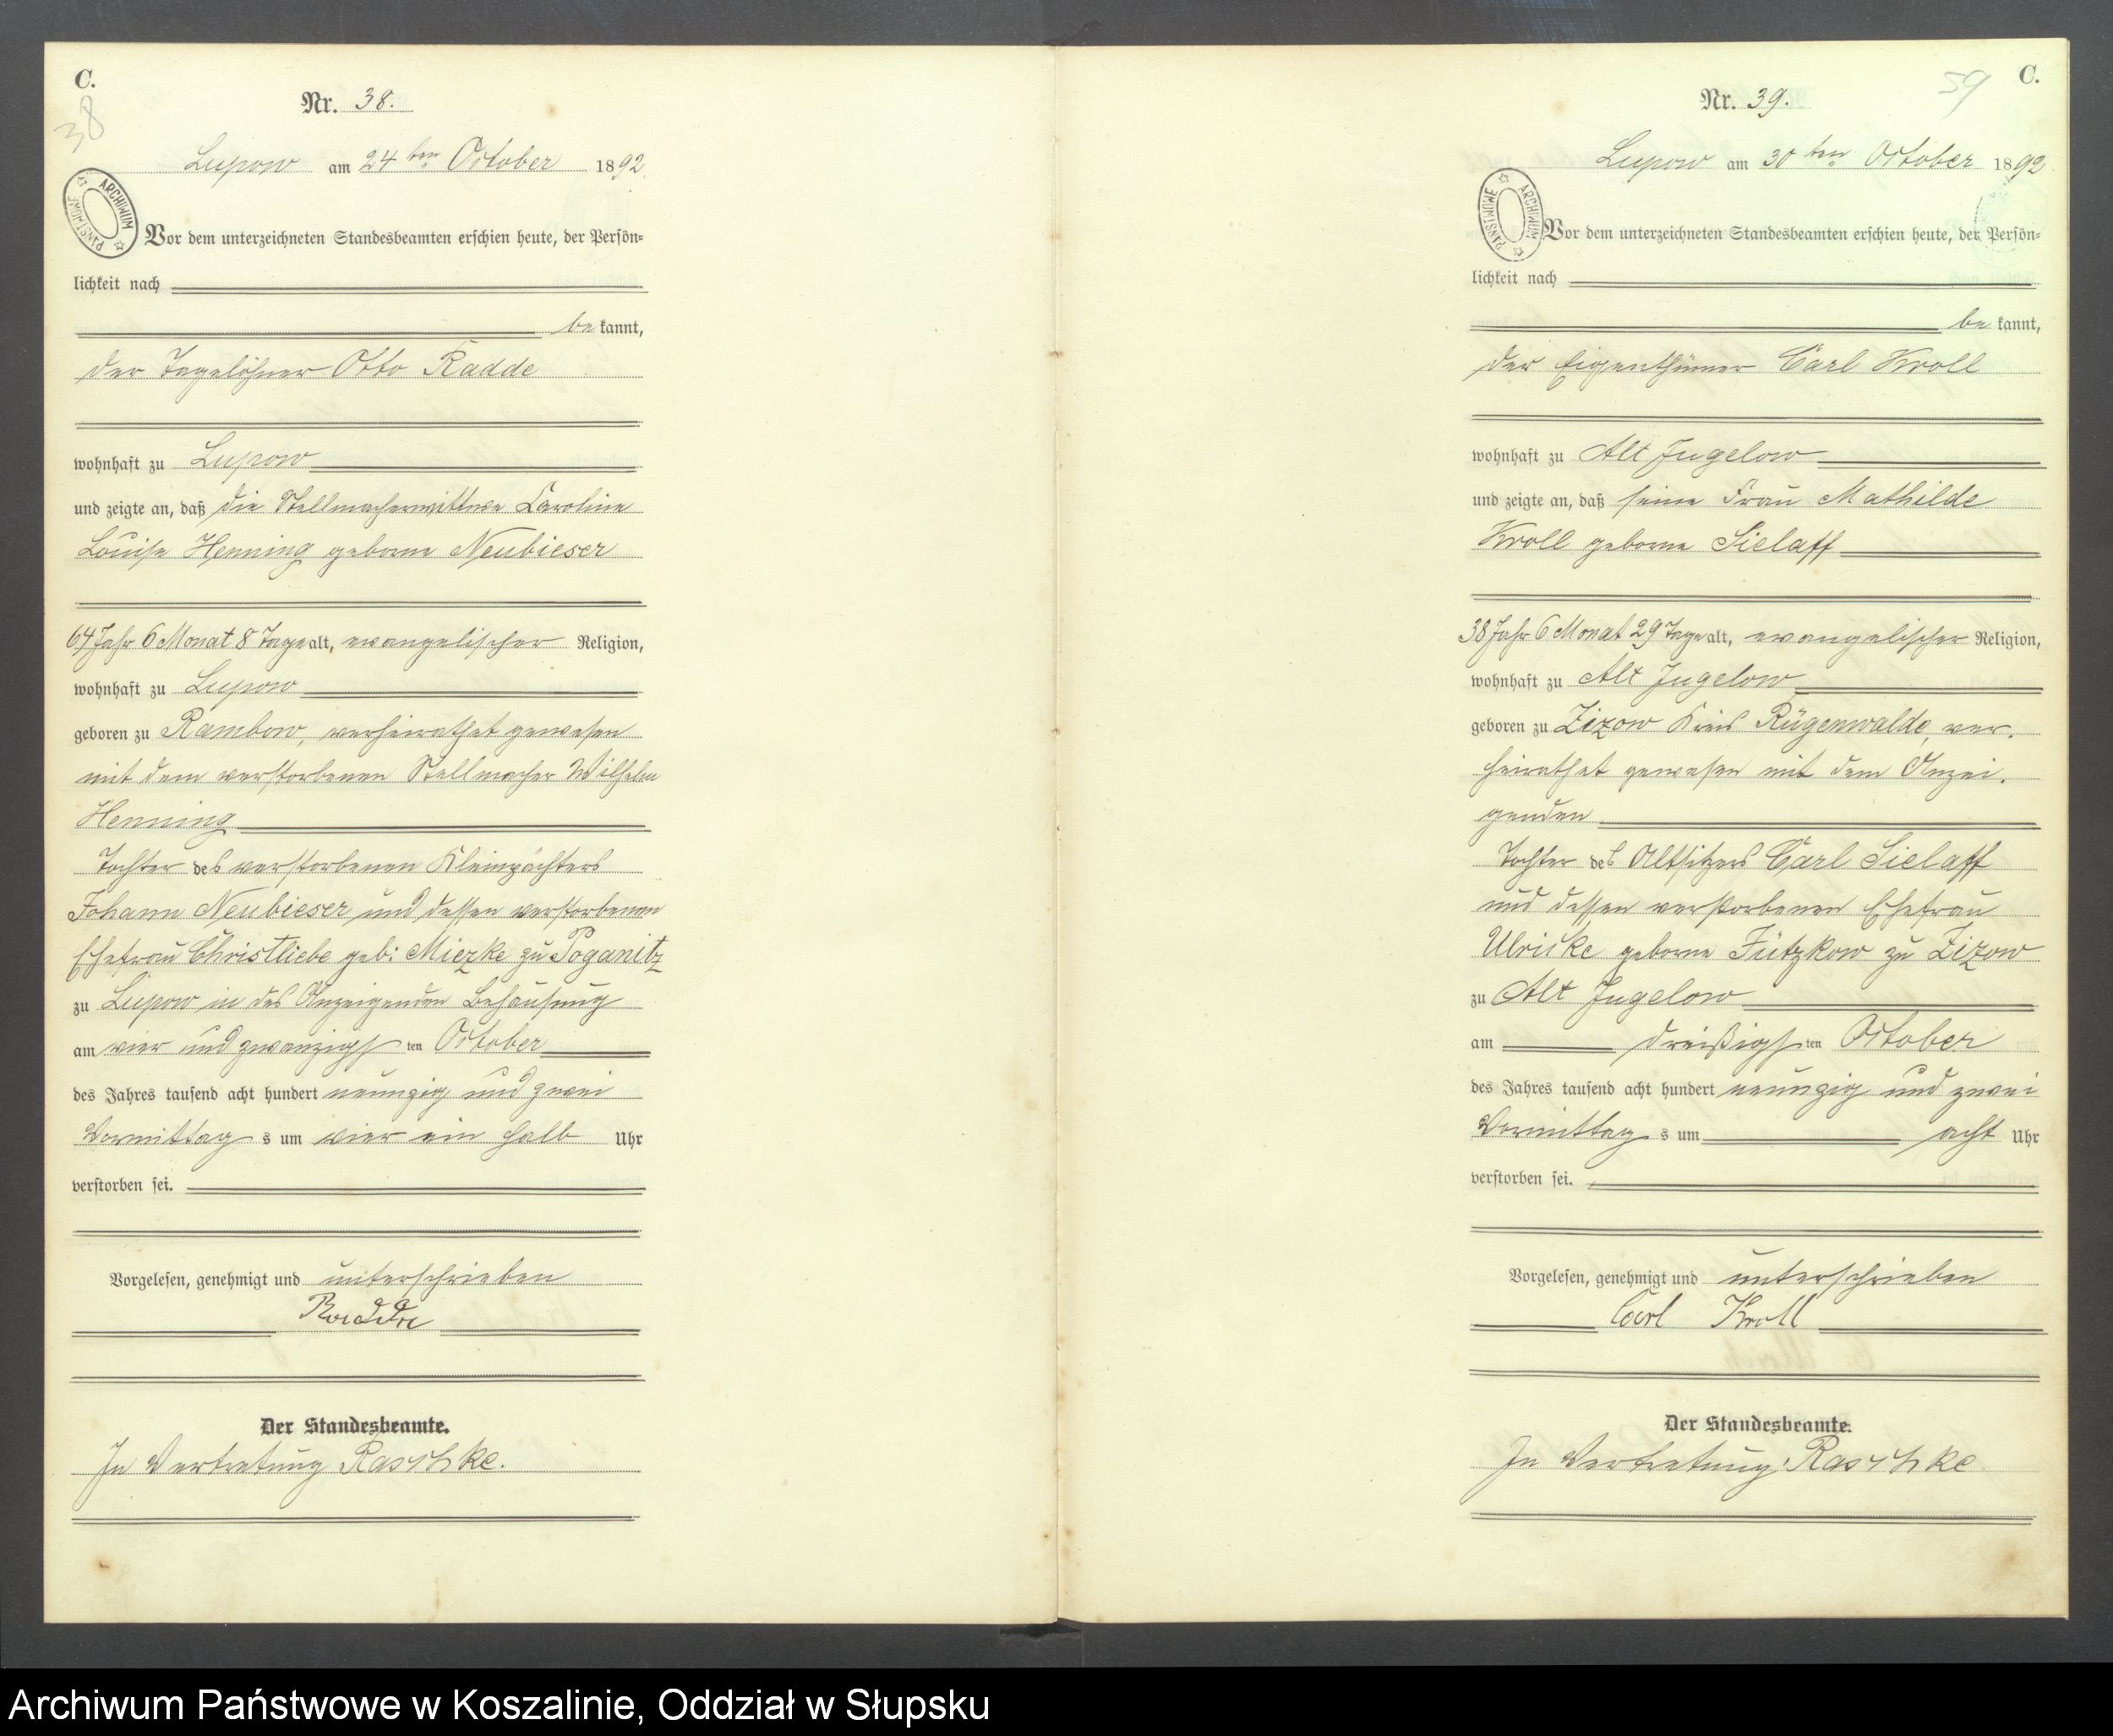 C.
38
Nr. 38.
Lupow am 24ten October 1892
ARCHIWUM PAŃSTWOWE
Vor dem unterzeichneten Standesbeamten erschien heute, der Persön=
lichkeit nach
be kannt,
der Tagelöhner Otto Radde
wohnhaft zu Lupow
und zeigte an, daß die Stellmacherwittwe Caroline
Louise Henning geborne Neubieser
64 Jahr 6 Monat 8 Tage alt, evangelischer Religion,
wohnhaft zu Lupow
geboren zu Rambow, verheirathet gewesen
mit dem verstorbenen Stellmacher Wilhelm
Henning
Tochter des verstorbenen Kleinpächters
Johann Neubieser und dessen verstorbenen
Ehefrau Christliebe geb: Miezke zu Poganitz
zu Lupow in des Anzeigenden Behausung
am vier und zwanzigsten October
des Jahres tausend acht hundert neunzig und zwei
Vormittags um vier ein halb Uhr
verstorben sei.
Vorgelesen, genehmigt und unterschrieben
Radde
Der Standesbeamte.
In Vertretung Raschke.
59
C.
Nr. 39.
Lupow am 30ten October 1892
ARCHIWUM PAŃSTWOWE
Vor dem unterzeichneten Standesbeamten erschien heute, der Persön=
lichkeit nach
be kannt,
der Eigenthümer Carl Kroll
wohnhaft zu Alt Jugelow
und zeigte an, daß seine Frau Mathilde
Kroll geborne Sielaff
38 Jahr 6 Monat 29 Tage alt, evangelischer Religion,
wohnhaft zu Alt Jugelow
geboren zu Zizow Kreis Rügenwalde, ver-
heirathet gewesen mit dem Anzei-
genden
Tochter des Altsitzers Carl Sielaff
und dessen verstorbenen Ehefrau
Ulricke geborne Fützkow zu Zizow
zu Alt Jugelow
am dreißigsten October
des Jahres tausend acht hundert neunzig und zwei
Vormittags um acht Uhr
verstorben sei.
Vorgelesen, genehmigt und unterschrieben
Carl Kroll
Der Standesbeamte.
In Vertretung: Raschke
Archiwum Państwowe w Koszalinie, Oddział w Słupsku